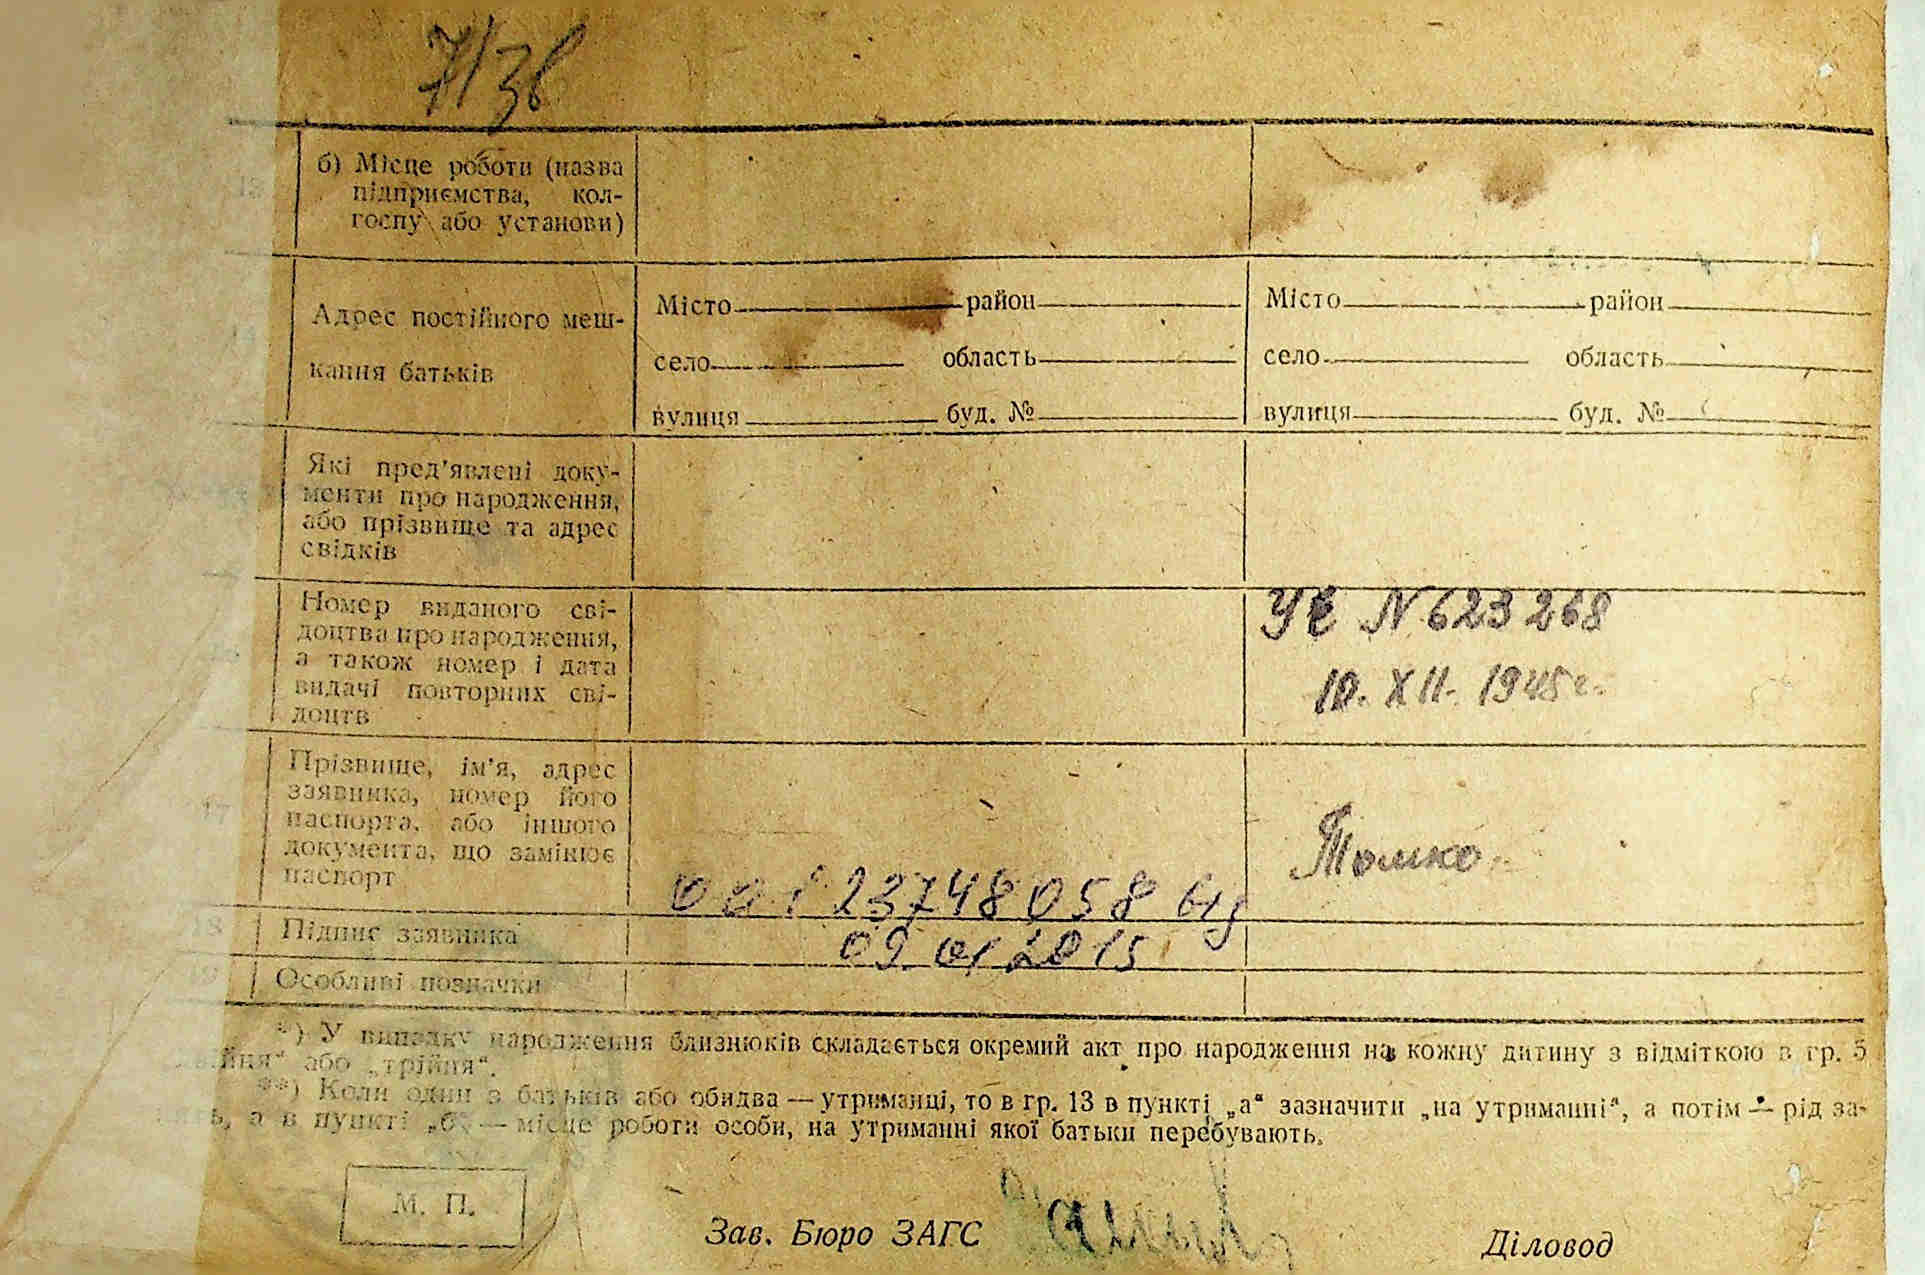 7/38
б) Місце роботи (назва
підприємства, кол-
госпу або установи)
Адрес постійного меш-
кання батьків
Місто район
село область
вулиця буд. №
Місто район
село область
вулиця буд. №
Які пред'явлені доку-
менти про народження,
або прізвище та адрес
свідків
Номер виданого сві-
доцтва про народження,
а також номер і дата
видачі повторних сві-
доцтв
УЕ N 623268
10. XII. 1945г.
17
Прізвище, ім'я, адрес
заявника, номер його
паспорта, або іншого
документа, що замінює
паспорт
00123748058 від
Томко
18 Підпис заявника
09.01.2015
19 Особливі позначки
*) У випадку народження близнюків складається окремий акт про народження на кожну дитину з відміткою в гр. 5
або „трійня“.
**) Коли один з батьків або обидва — утриманці, то в гр. 13 в пункті „а“ зазначити „на утриманні“, а потім — рід за-
а в пункті „б“ — місце роботи особи, на утриманні якої батьки перебувають.
М. П.
Зав. Бюро ЗАГС
Діловод